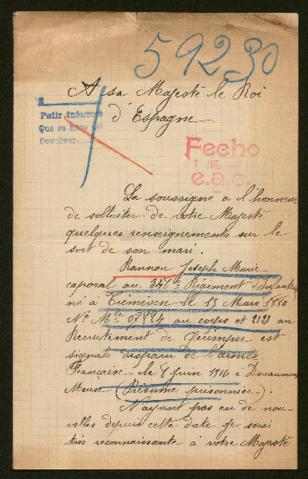 59230
A sa Majesté le Roi
d'Espagne
Pedir informe
Que se hace del
Devolver
Fecho
7 JUL
e.a.e.
La soussignée a l'honneur
de solliciter de votre Majesté
quelques renseignements sur le
sort de son mari.
Rannou Joseph Marie
caporal au Régiment d'infanterie
né à Tréméven le 13 Mars 1880
Nº Mle au corps et 2121 au
Recrutement de Quimper est
signalé disparu de l'armée
Française le 8 juin 1916 à Douaumont
Meuse (Présumé prisonnier).
N'ayant pas eu de nou-
velles depuis cette date je serai
très reconnaissante à votre Majesté